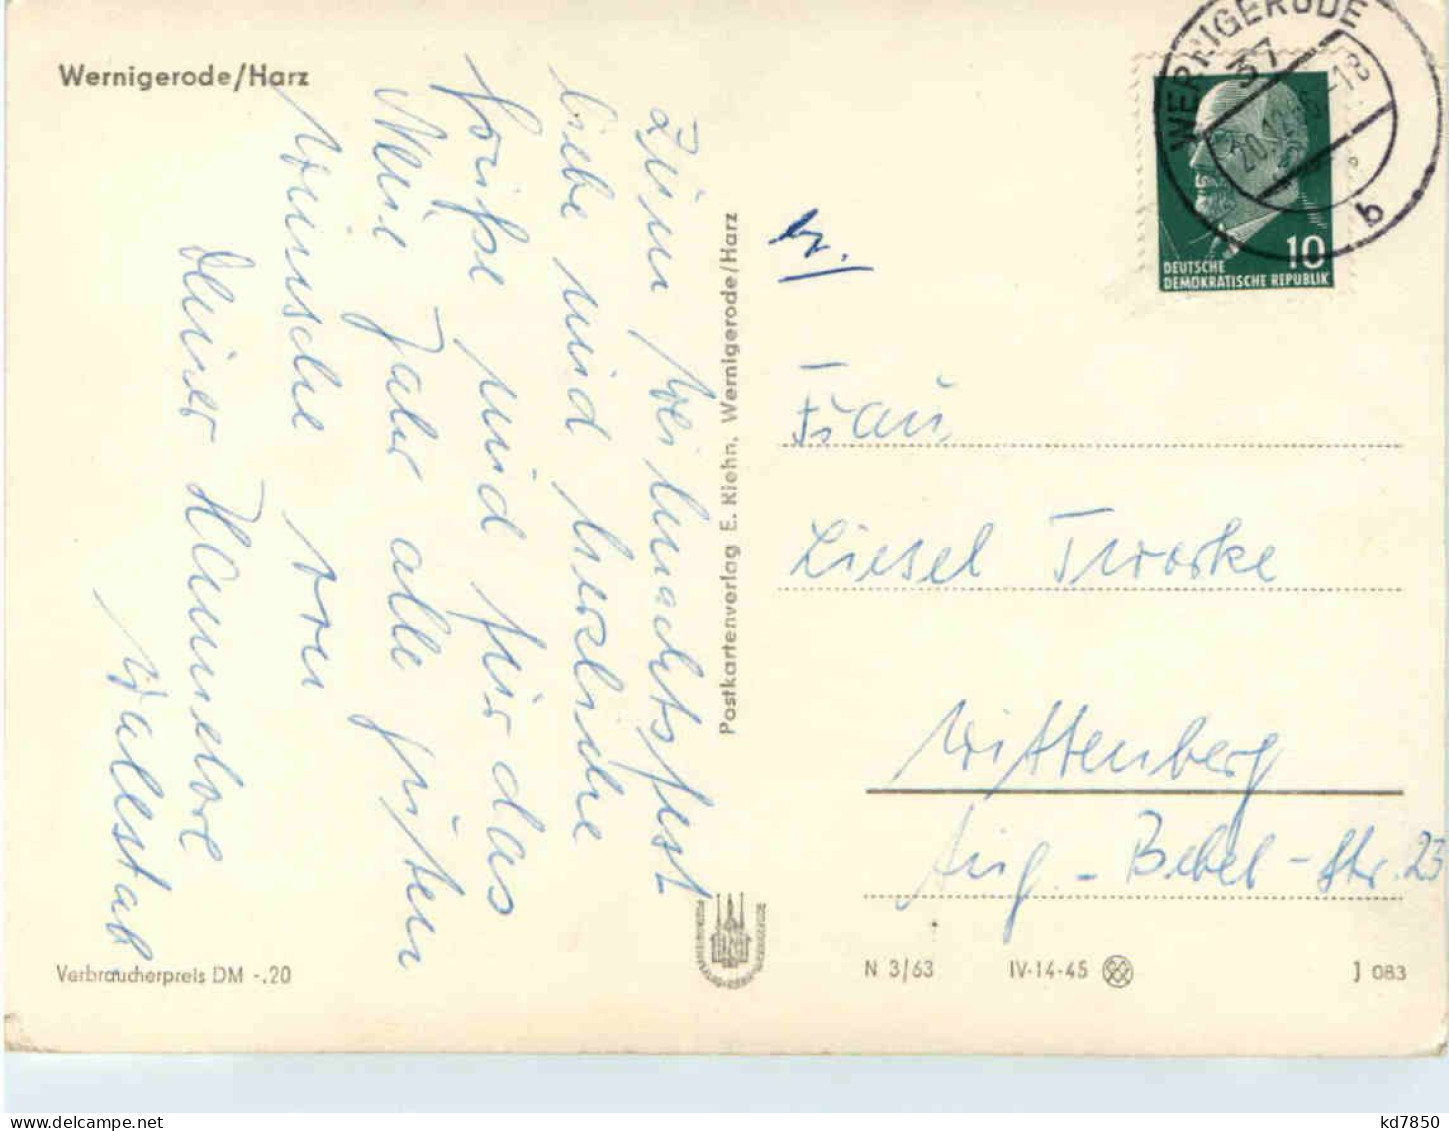 Wernigerode/Harz
Zum Weihnachtsfest
liebe und herzliche
Grüße und für das
Neue Jahr alle guten
Wünsche von
Deiner Hannelore
Postkartenverlag E. Kiehn, Wernigerode/Harz
WERNIGERODE
37
20.12.
b
10
DEUTSCHE
DEMOKRATISCHE REPUBLIK
Frau
Liesel
Wittenberg
Aug.-Bebel-Str. 23
Verbraucherpreis DM -.20
N 3/63 IV-14-45 J 083
kd7850